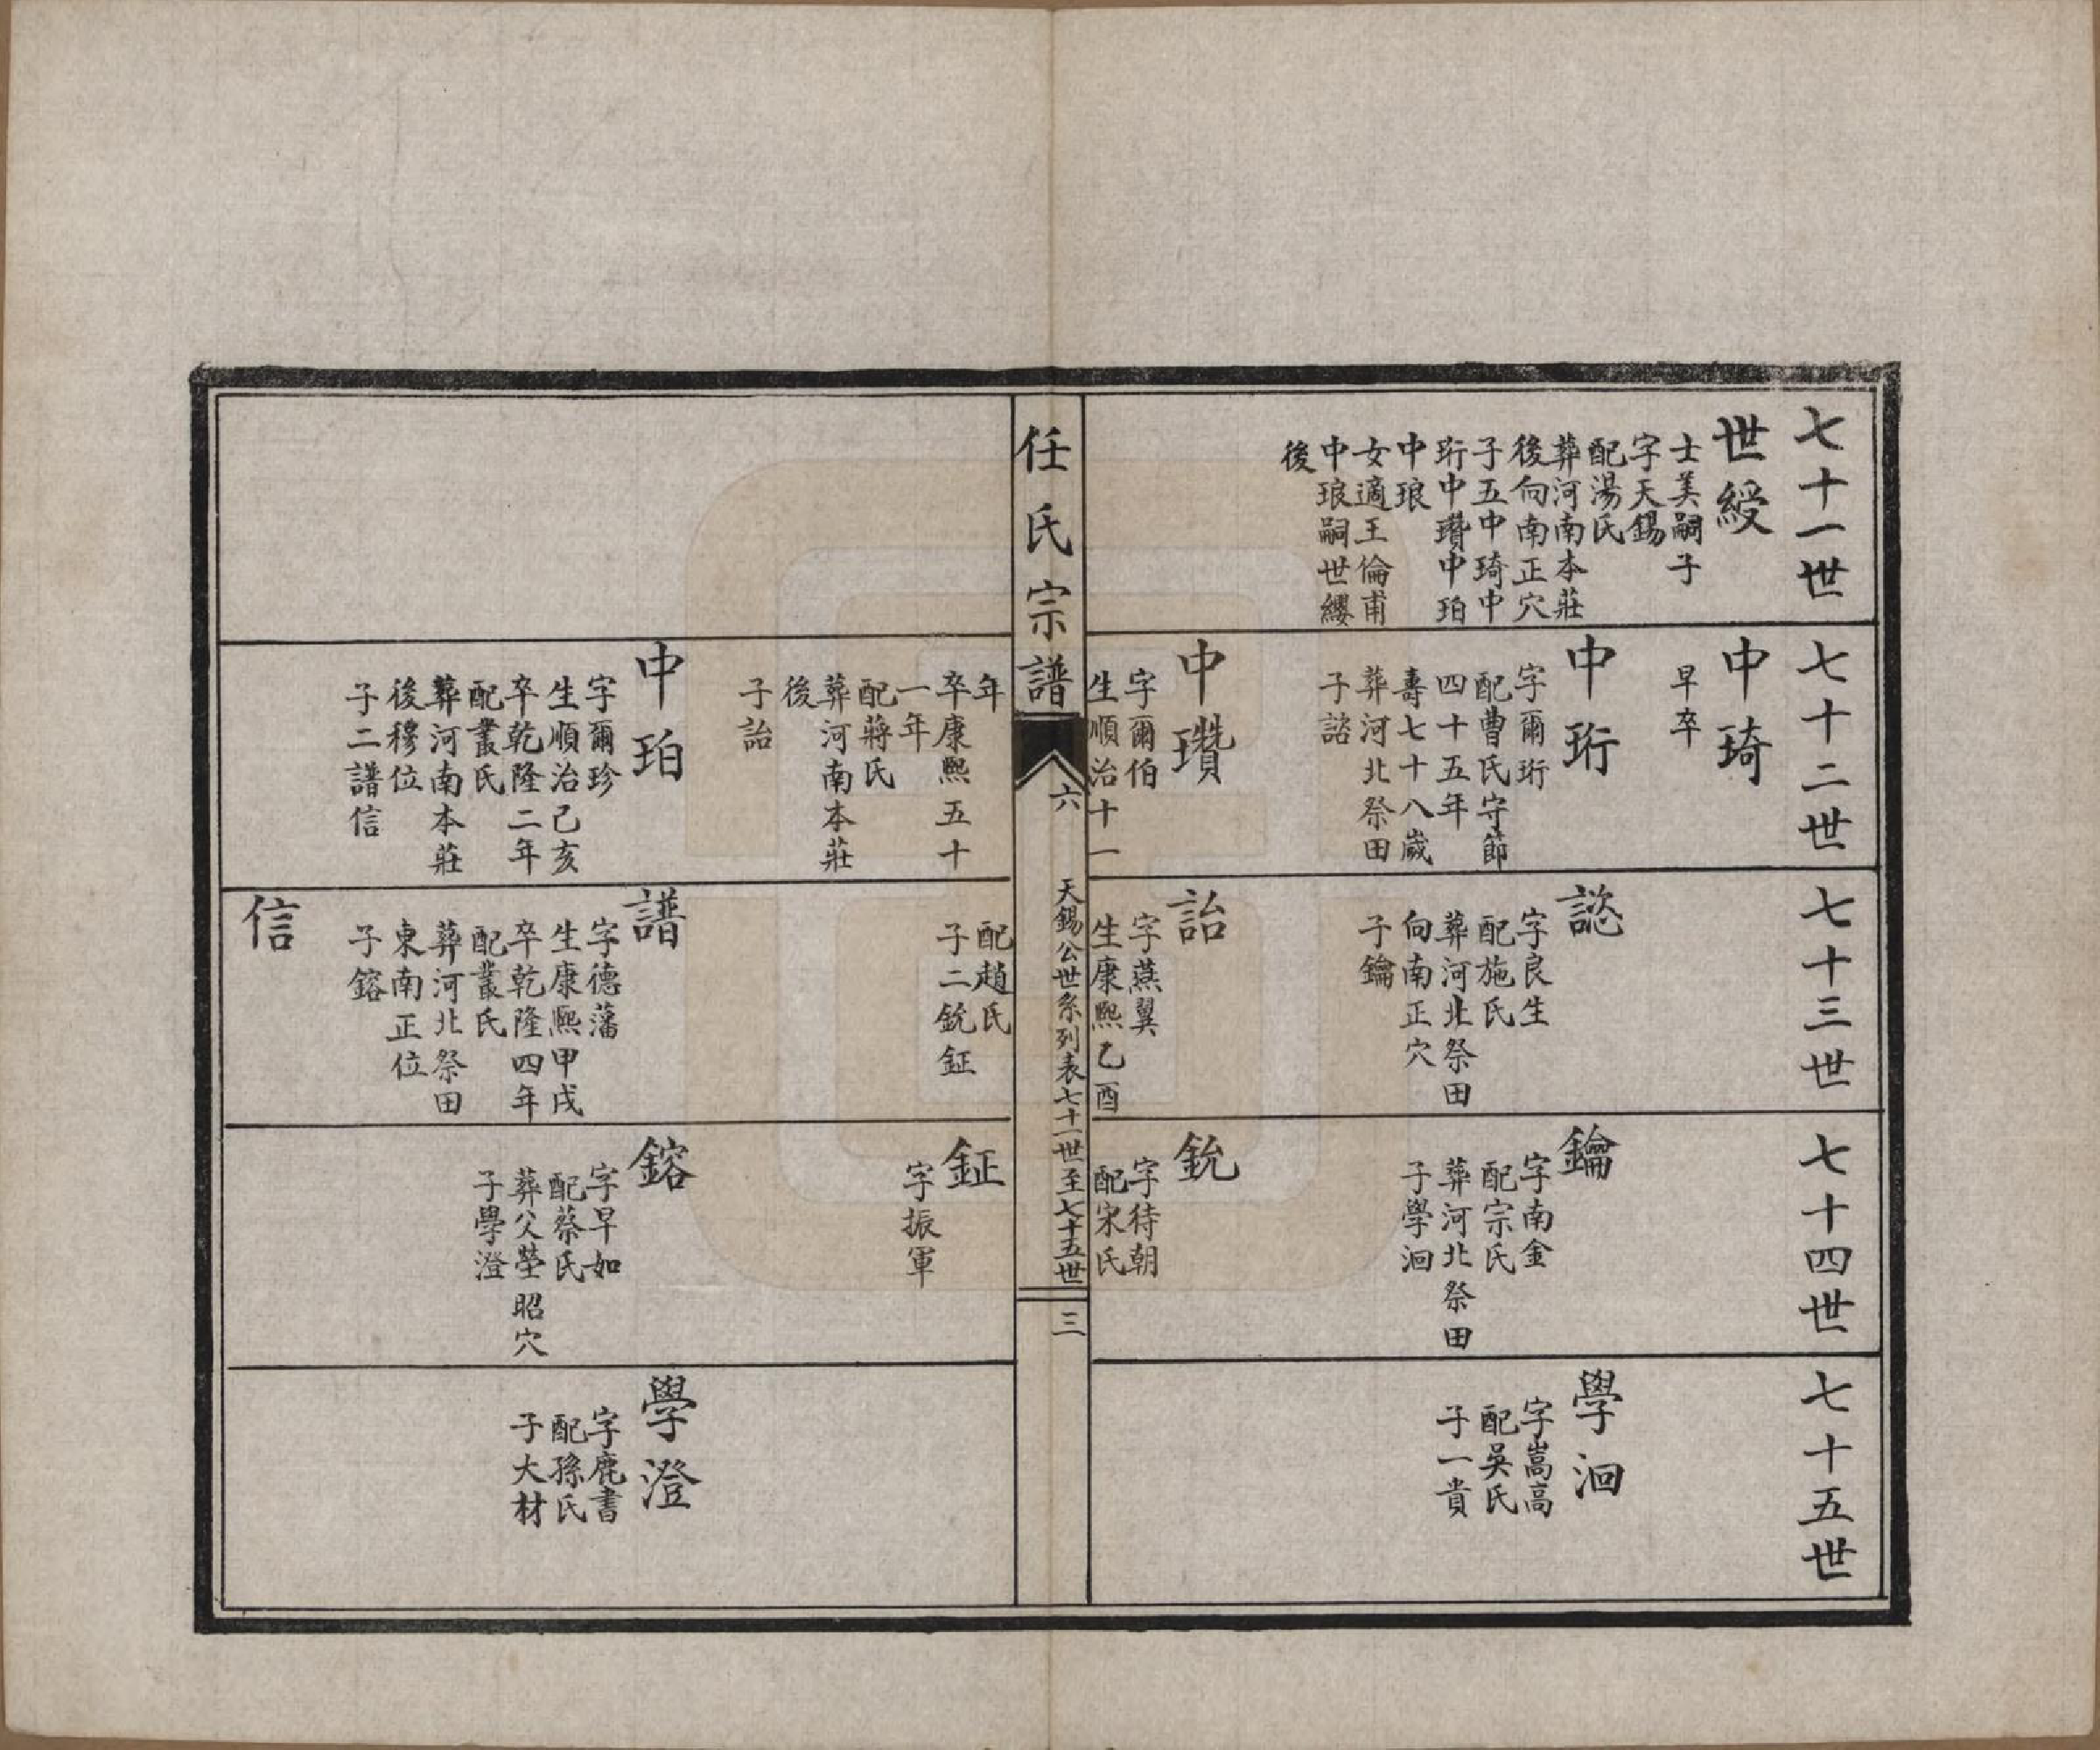 七十一世
世綬
士美嗣子
字天錫
配湯氏
葬河南本莊
後向南正穴
子五中琦中
珩中瓚中珀
中琅
女適王倫甫
中琅嗣世纓
後
七十二世
中琦
早卒
中珩
字爾珩
配曹氏守節
四十五年
壽七十八歲
葬河北祭田
子諮
中瓚
字爾伯
生順治十一
年
卒康熙五十
一年
配蔣氏
葬河南本莊
後
子詒
中珀
字爾珍
生順治己亥
卒乾隆二年
配叢氏
葬河南本莊
後穆位
子二譜信
七十三世
諮
字良生
配施氏
葬河北祭田
向南正穴
子鑰
詒
字燕翼
生康熙乙酉
配趙氏
子二銃鉦
譜
字德藩
生康熙甲戌
卒乾隆四年
配叢氏
葬河北祭田
東南正位
子鎔
信
七十四世
鑰
字南金
配宗氏
葬河北祭田
子學洄
銃
字待朝
配宋氏
鉦
字振軍
鎔
字早如
配蔡氏
葬父塋昭穴
子學澄
七十五世
學洄
字嵩高
配吳氏
子一貴
學澄
字鹿書
配孫氏
子大材
任氏宗譜
六
天錫公世系列表七十一世至七十五世
三